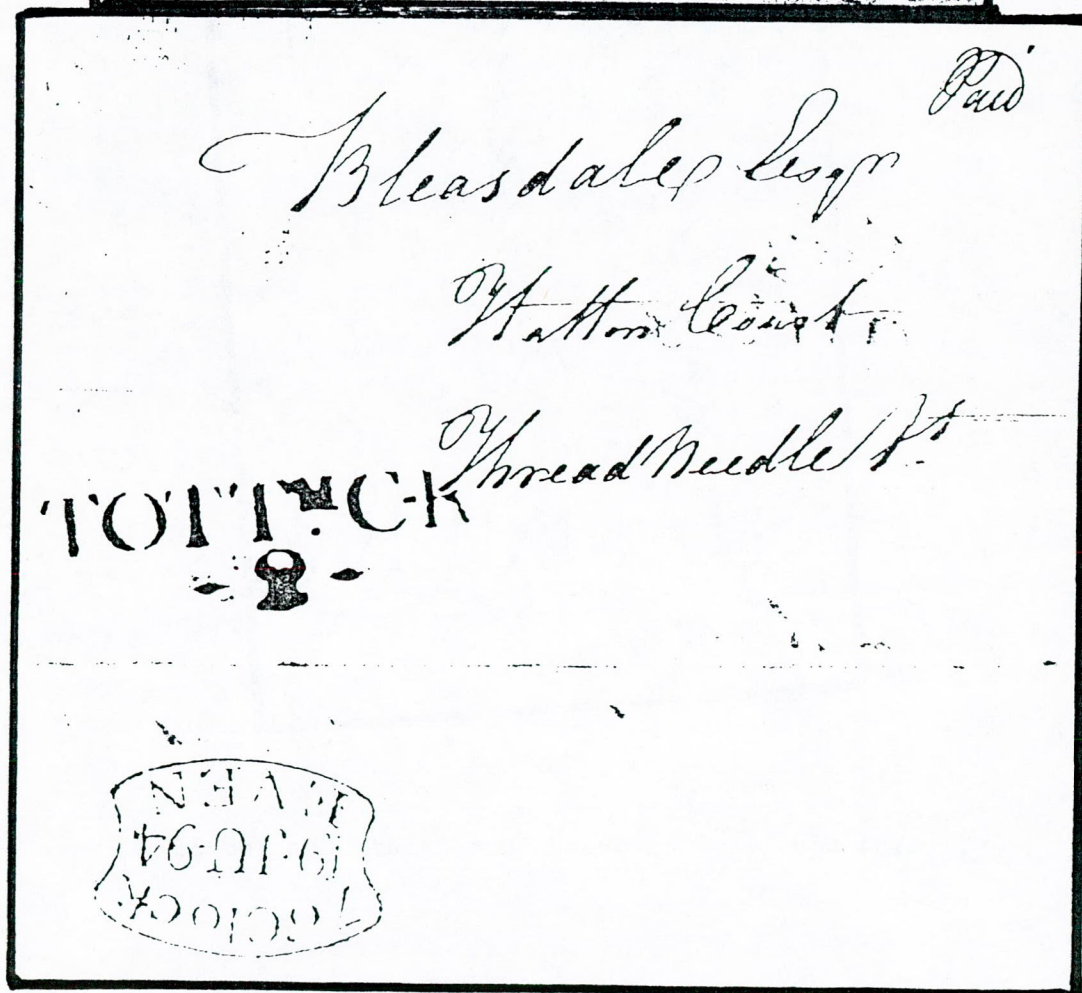 Paid
Bleasdale Esqr
Hatton Court
Thread Needle St
7 OCLOCK
19·JU·94
EVEN